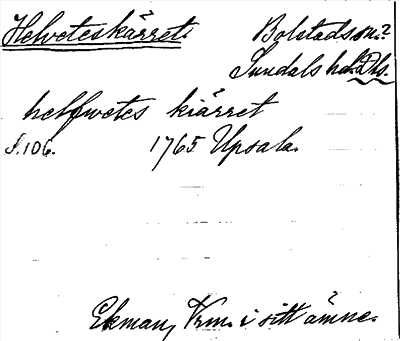 Helveteskärret. Bolstads sn.?
Sundals hd. Dls.
helfwetes kiärret
S. 106. 1765. Upsala.
Ekman, Vrm. i sitt ämne.